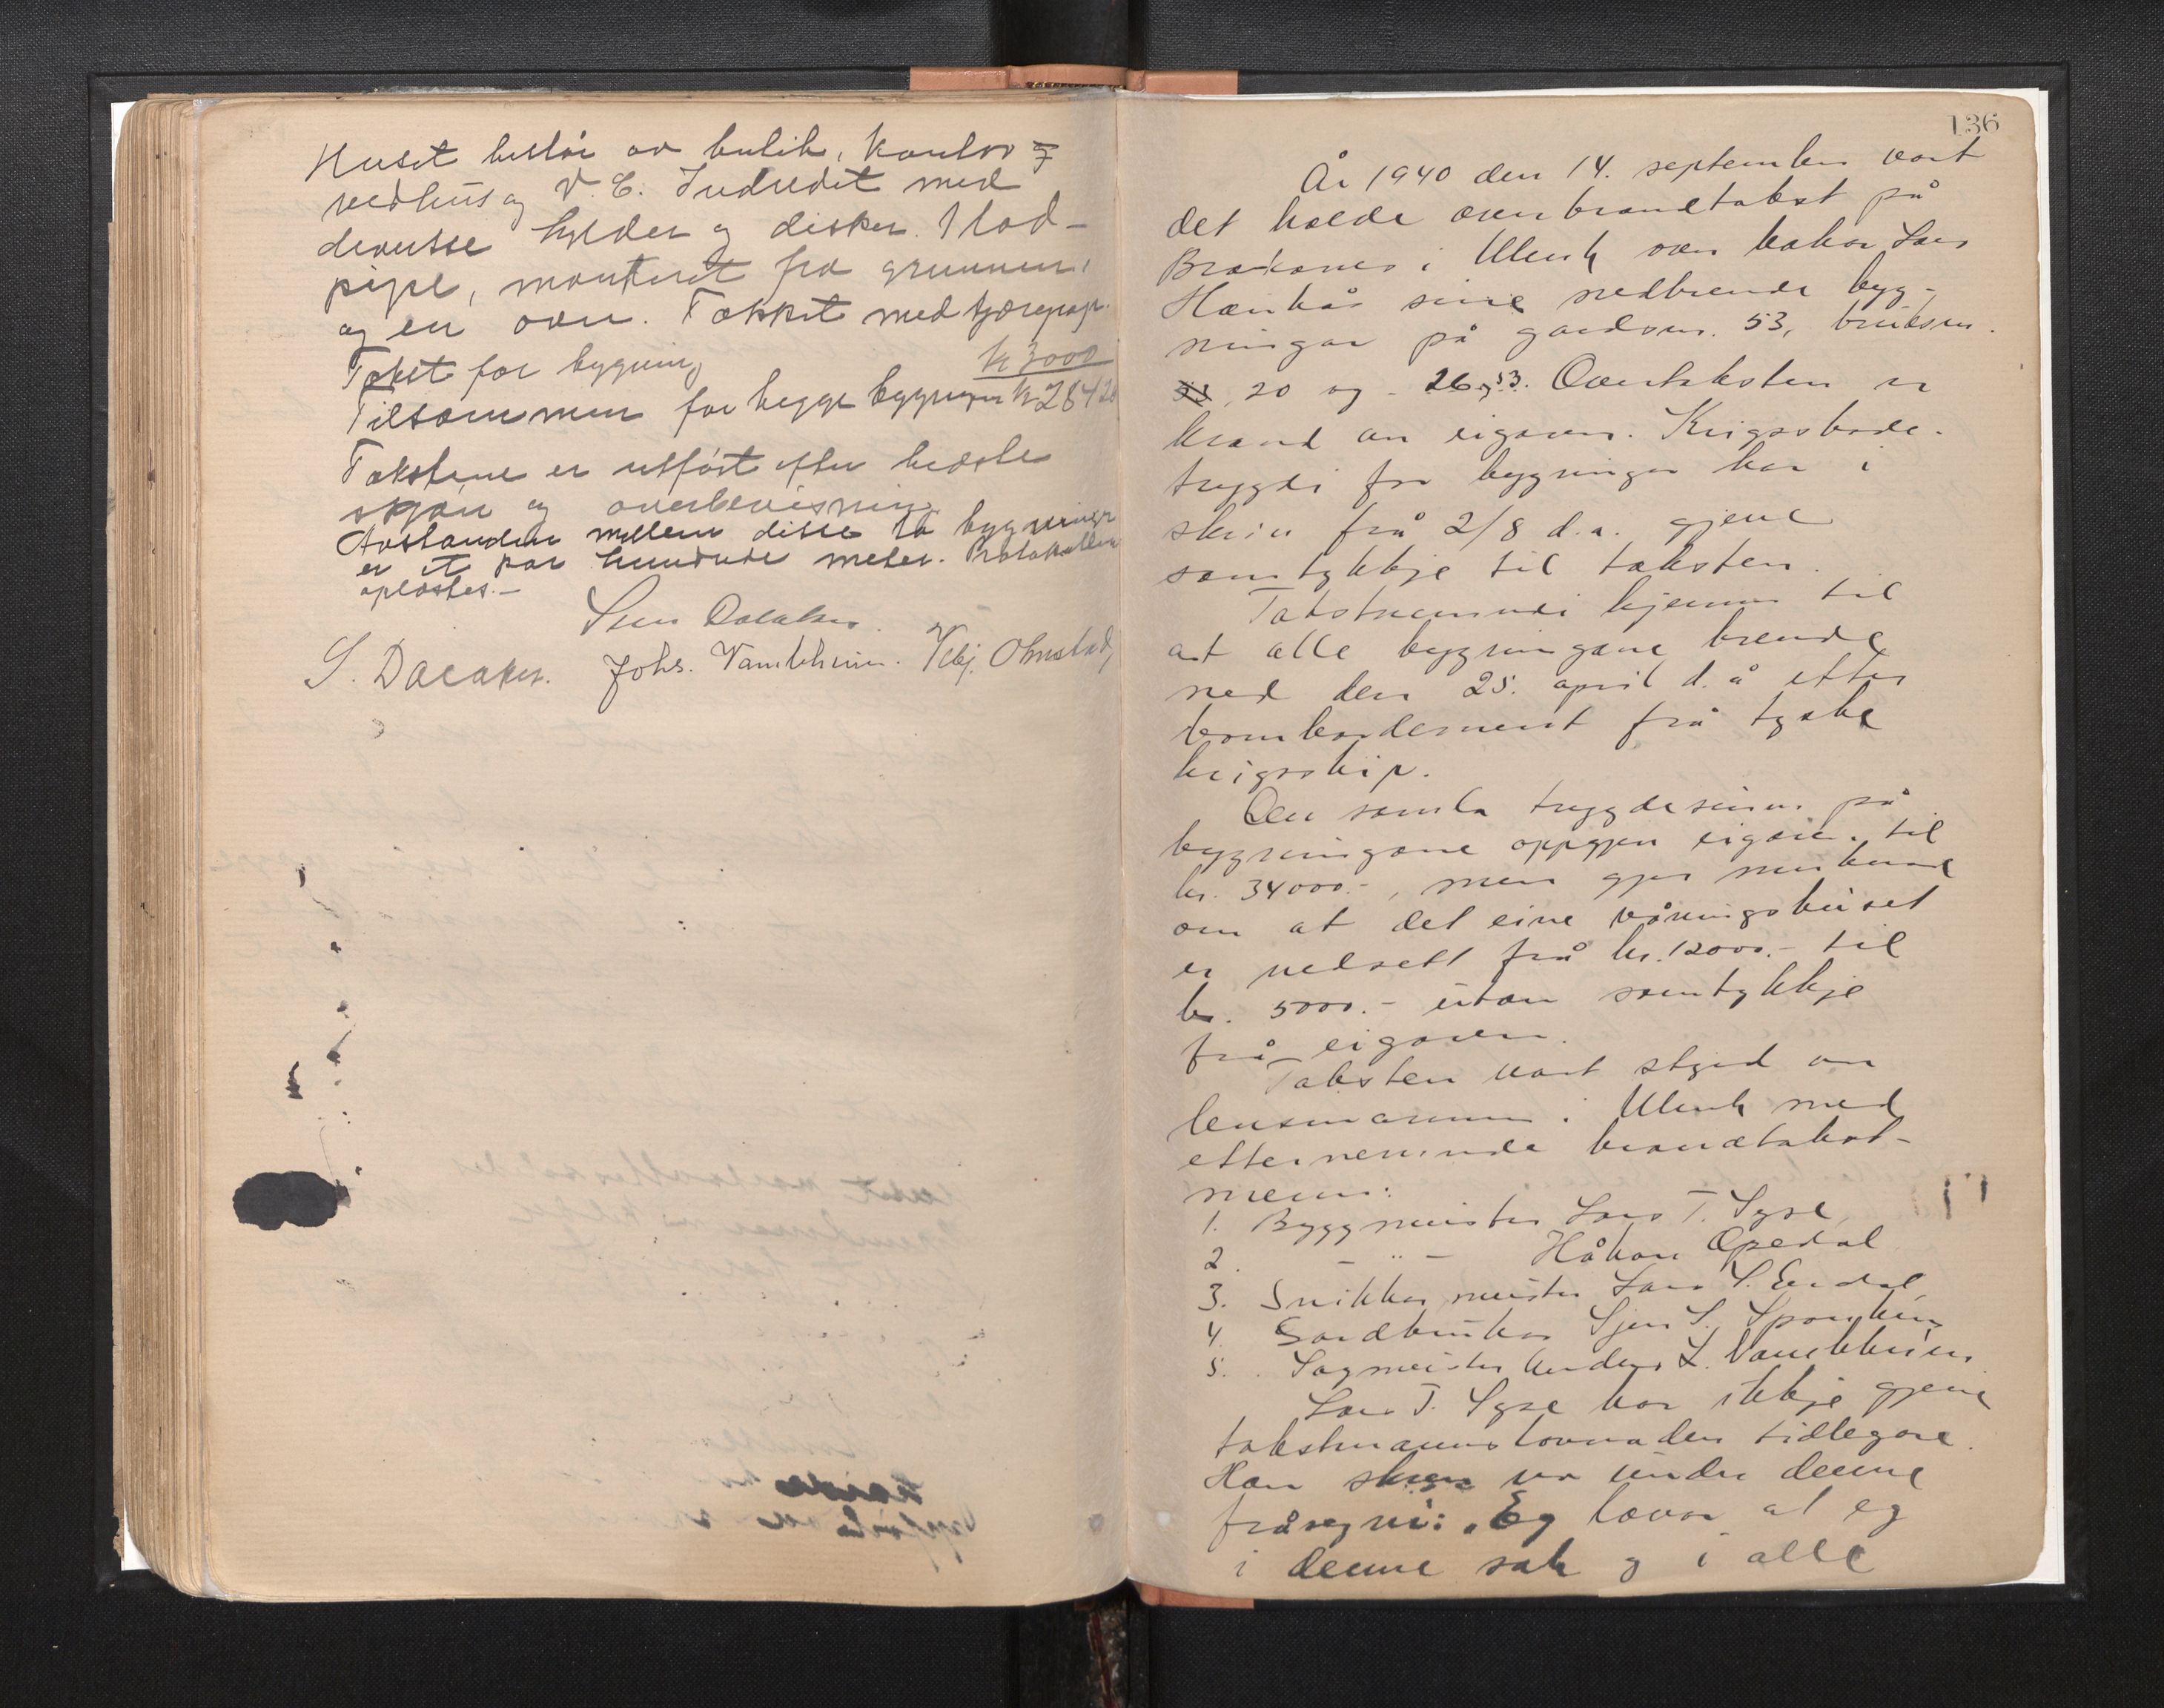 Huset består av butik, kontor og
vedhus og V. C. Indredet med
diverse hylder og disker. 1 lod-
pipe, monteret fra grunnen,
og en ovn. Tækket med tjærepap.
Takst for bygning kr 3000
Tilsammen for begge bygninger kr 28420
Takstene er utført efter bedste
skjøn og overbevisning
Avstanden mellem disse to bygninger
er et par hundrede meter. Protokollen
oplæstes.-
S. Dalaker. Johs. Vambheim.
136
År 1940 den 14. september vart
det halde overbrandtakst på
Brakanes i Ulvik over bakar Lars
Hænkås sine nedbrende byg-
ningar på gardsnr. 53, bruksnr.
20 og 26, 53. Overtaksten er
kravd av eigaren. Krigsskade-
trygdi for bygningar har i
skriv frå 2/8 d.å. gjeve
samtykkje til taksten.
Takstnemndi kjenner til
at alle bygningane brende
ned den 25. april d.å etter
bombardement frå tyske
krigsskip.
Den samla trygdesum på
bygningane oppgjev eigaren til
kr. 34000.-, men gjer merksam
om at det eine våningshuset
er nedsett frå kr. 12000.- til
kr. 5000.- utan samtykkje
frå eigaren.
Taksten vart styrd av
lensmannen i Ulvik med
etternemnde brandtakst-
menn:
1. Byggmeister Lars T. Syse
2. - " - Håkon Opedal
3. Snikkarmeister Lars S. Erdal
4. Gardbrukar Sjur S. Sponheim
5. Sagmeister Anders L. Vambheim
Lars T. Syse har ikkje gjeve
takstmannslovnaden tidlegare.
Han skriv no under denne
fråsegni: "Eg lovar at eg
i denne sak og i alle